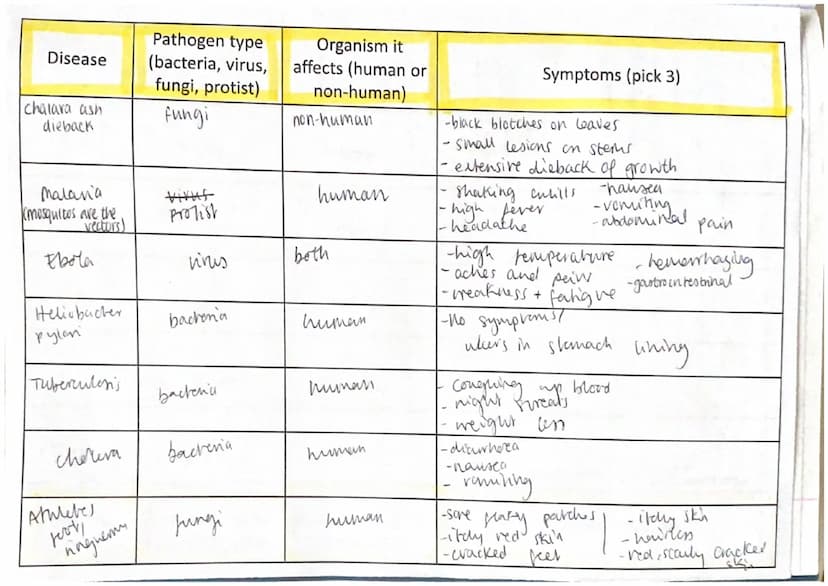 Disease
Pathogen type
(bacteria, virus,
fungi, protist)
Organism it
affects (human or
non-human)
Symptoms (pick 3)
chalara ash
dieback
fungi
non-human
-black blotches on leaves
- small lesions on stems
- extensive dieback of growth
Malaria
(mosquitos are the
vectors)
virus
protist
human
- shaking chills
- high fever
- headache
-nausea
-vomiting
-abdominal pain
Ebola
virus
both
-high temperature
- aches and pains
- weakness + fatigue
- hemorrhaging
-gastrointestinal
Heliobacter
pylori
bacteria
human
-No symptoms/
ulcers in stomach lining
Tuberculosis
bacteria
human
- Coughing up blood
- night sweats
- weight loss
cholera
bacteria
human
-diarrhoea
-nausea
- vomiting
Athletes
foot/
ringworm
fungi
human
-sore flaky patches
-itchy red skin
-cracked feet
- itchy skin
- hairloss
- red, scaly cracked
skin